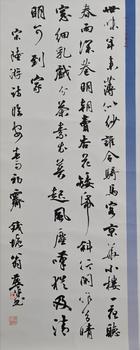 世味年來薄似紗誰令騎馬客京華小樓一夜聽
春雨深巷明朝賣杏花矮紙斜行閒作草晴
窗細乳戲分茶素衣莫起風塵嘆猶及清
明可到家
宋陸游詩臨安春雨初霽 錢塘翁